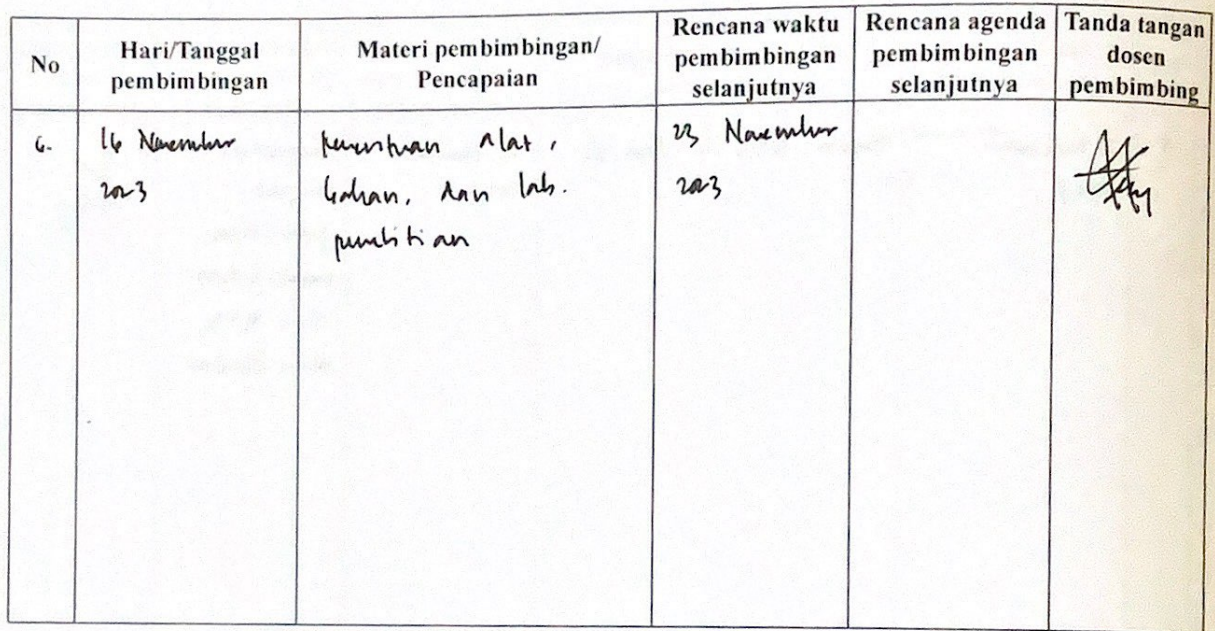 No
Hari/Tanggal
pembimbingan
Materi pembimbingan/
Pencapaian
Rencana waktu
pembimbingan
selanjutnya
Rencana agenda
pembimbingan
selanjutnya
Tanda tangan
dosen
pembimbing
6.
16 November
2023
penentuan alat,
bahan, dan lab.
penelitian
23 November
2023